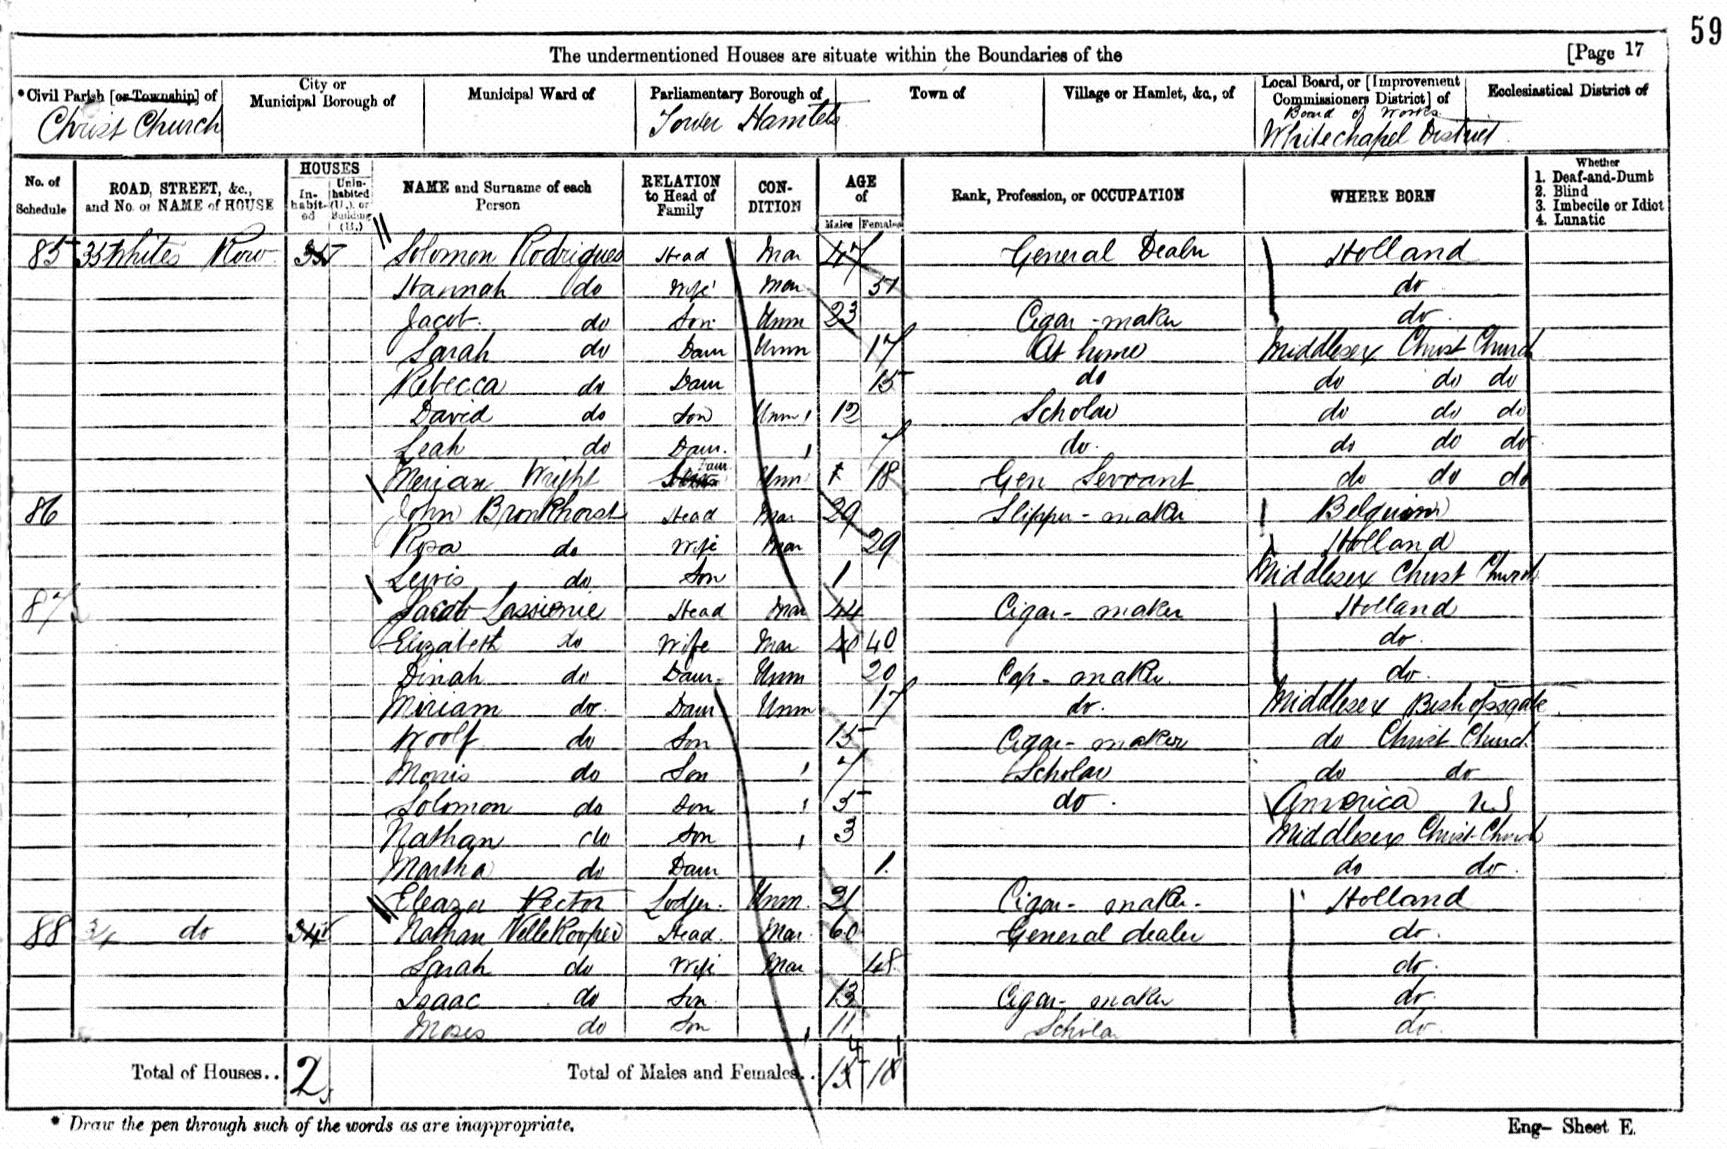 59
The undermentioned Houses are situate within the Boundaries of the [Page 17
*Civil Parish [or Township] of City or Municipal Borough of Municipal Ward of Parliamentary Borough of Town of Village or Hamlet, &c., of Local Board, or [Improvement Commissioners District] of Ecclesiastical District of
Christ Church Tower Hamlets Board of Works Whitechapel District
No. of Schedule ROAD, STREET, &c., and No. or NAME of HOUSE HOUSES In-habit-ed Unin-habited (U.), or Building (B.) NAME and Surname of each Person RELATION to Head of Family CON-DITION AGE of Males Females Rank, Profession, or OCCUPATION WHERE BORN Whether 1. Deaf-and-Dumb 2. Blind 3. Imbecile or Idiot 4. Lunatic
85 35 Whites Row 35 Solomon Rodrigues Head Mar 47 General Dealer Holland
Hannah do Wife Mar 51 do
Jacob do Son Unm 23 Cigar-maker do
Sarah do Daur Unm 17 At home Middlesex Christ Church
Rebecca do Daur 15 do do do do
David do Son Unm 12 Scholar do do do
Leah do Daur. 7 do. do do do
Merian Wright Unm 18 Gen Servant do do do
86 John Bronkhorst Head Mar 29 Slipper-maker Belguim
Rosa do Wife Mar 29 Holland
Lewis do Son 1 Middlesex Christ Church
87 Jacob Head Mar 44 Cigar-maker Holland
Elizabeth do Wife Mar 40 40 do.
Dinah do Daur. Unm 20 Cap-maker do.
Miriam do. Daur Unm 17 do. Middlesex Bishopsgate
Woolf do Son 15 Cigar-maker do Christ Church
Morris do Son 7 Scholar do do
Solomon do Son 5 do. America U.S
Nathan do Son 3 Middlesex Christ Church
Martha do Daur 1. do do.
Eleazer Lodger. Unm. 21 Cigar-maker- Holland
88 34 do 34 Nathan Head. Mar 60 General dealer do.
Sarah do Wife Mar 48 do.
Isaac do Son 13 Cigar-maker do.
Moses do Son 11 Schola do.
Total of Houses.. 2 Total of Males and Females.. 14 11
* Draw the pen through such of the words as are inappropriate.
Eng- Sheet E.